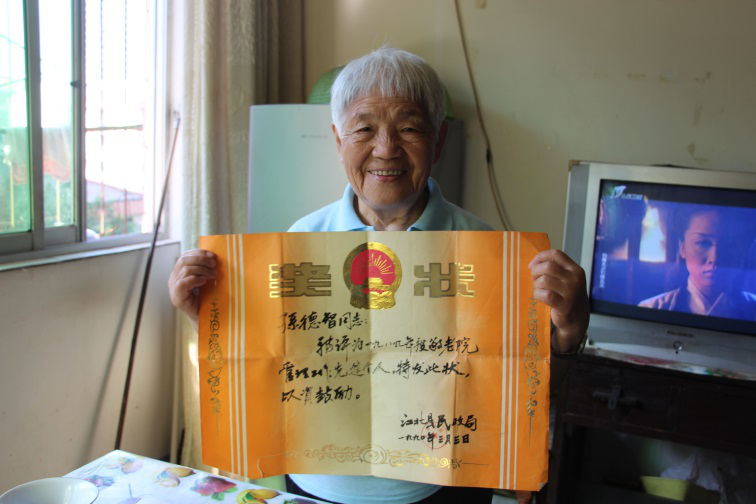 奖状
孙德智同志:
被评为一九八九年度敬老院
管理工作先进个人,特发此状,
以资鼓励。
江北县民政局
一九九〇年三月三日